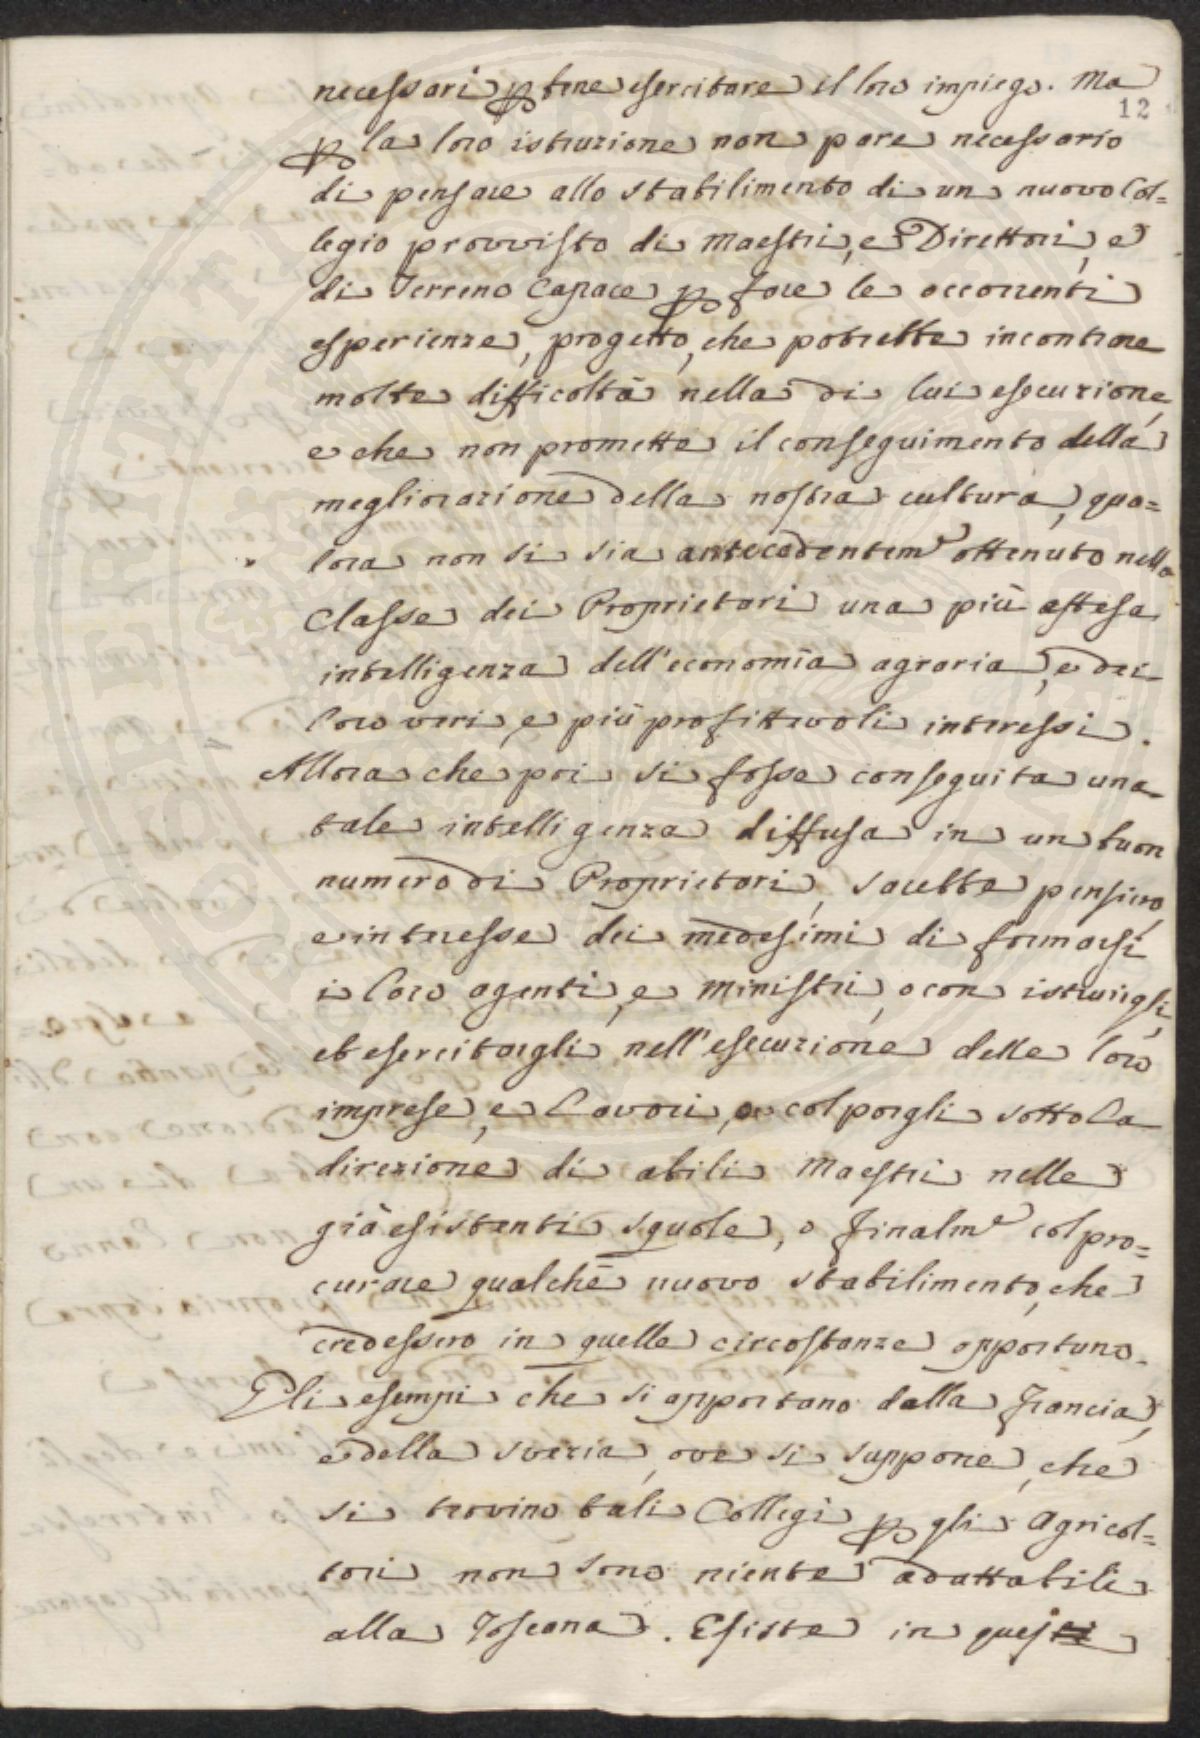 necessari p bene esercitare il loro impiego. Ma
12
p la loro istruzione non pare necessario
di pensare allo stabilimento di un nuovo Col=
legio provvisto di Maestri, e Direttori, e
di Terreno Capace p fare le occorrenti
esperienze, progetto, che potrebbe incontrare
molte difficoltà nella di lui esecuzione,
e che non promette il conseguimento della
megliorazione della nostra cultura, qua=
lora non si sia antecedentem.e ottenuto nella
Classe dei Proprietari una più estesa
intelligenza dell'economia agraria, e dei
loro veri, e più profittevoli interessi.
Allora che poi si fosse conseguita una
tale intelligenza diffusa in un buon
numero di Proprietari, sarebbe pensiero,
e interesse dei medesimi di formarsi
i loro agenti, e ministri, o con istruirgli,
et esercitargli nell'esecuzione delle loro
imprese, e Lavori, o col porgli sotto la
direzione di abili Maestri nelle
già esistenti squole, o finalm.e col pro=
curare qualche nuovo stabilimento, che
credessero in quelle circostanze opportuno.
Gli esempi che si apportano dalla Francia,
e della Svezia, ove si suppone, che
si trovino tali Collegi p gli Agricol=
tori non sono niente adattabili
alla Toscana. Esiste in questi